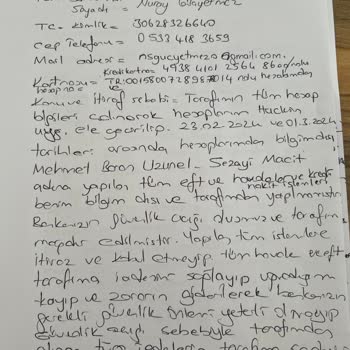 Soyadı = Nuray
TC. Kimlik = 30628326640
Cep Telefonu = 0533 418 3659
Mail adresi = @gmail.com.
Kredi kartı no: 4938 4101 2564 8600 nolu
Kart no su = TR: 001580072896 14 ndu hesabımdan
hesap no = ve
Konu ve İtiraf sebebi = Tarafımın tüm hesap
bilgileri edinerek hesaplarım Hacklen
ele geçirilip. 23.02.2024 ve 01.3.2024
tarihleri arasında hesaplarımdan bilgim dışı
Mehmet Baran Uzunel - Sezayi Macit
adına yapılan tüm eft ve havaleler ve kredi
nakit işlemleri
benim bilgim dışı ve tarafımdan yapılmamıştır.
Bankanızın güvenlik açığı ve tarafım
mağdur edilmiştir. Yapılan tüm işlemlere
itiraz ve kabul etmeyip, tüm havale ve eft
tarafıma iadesini sağlayıp
kayıp ve zararın giderilerek bankanızın
gerekli güvenlik önlemi yeterli olmayıp
güvenlik açığı sebebiyle tarafımdan
tüm tarafıma